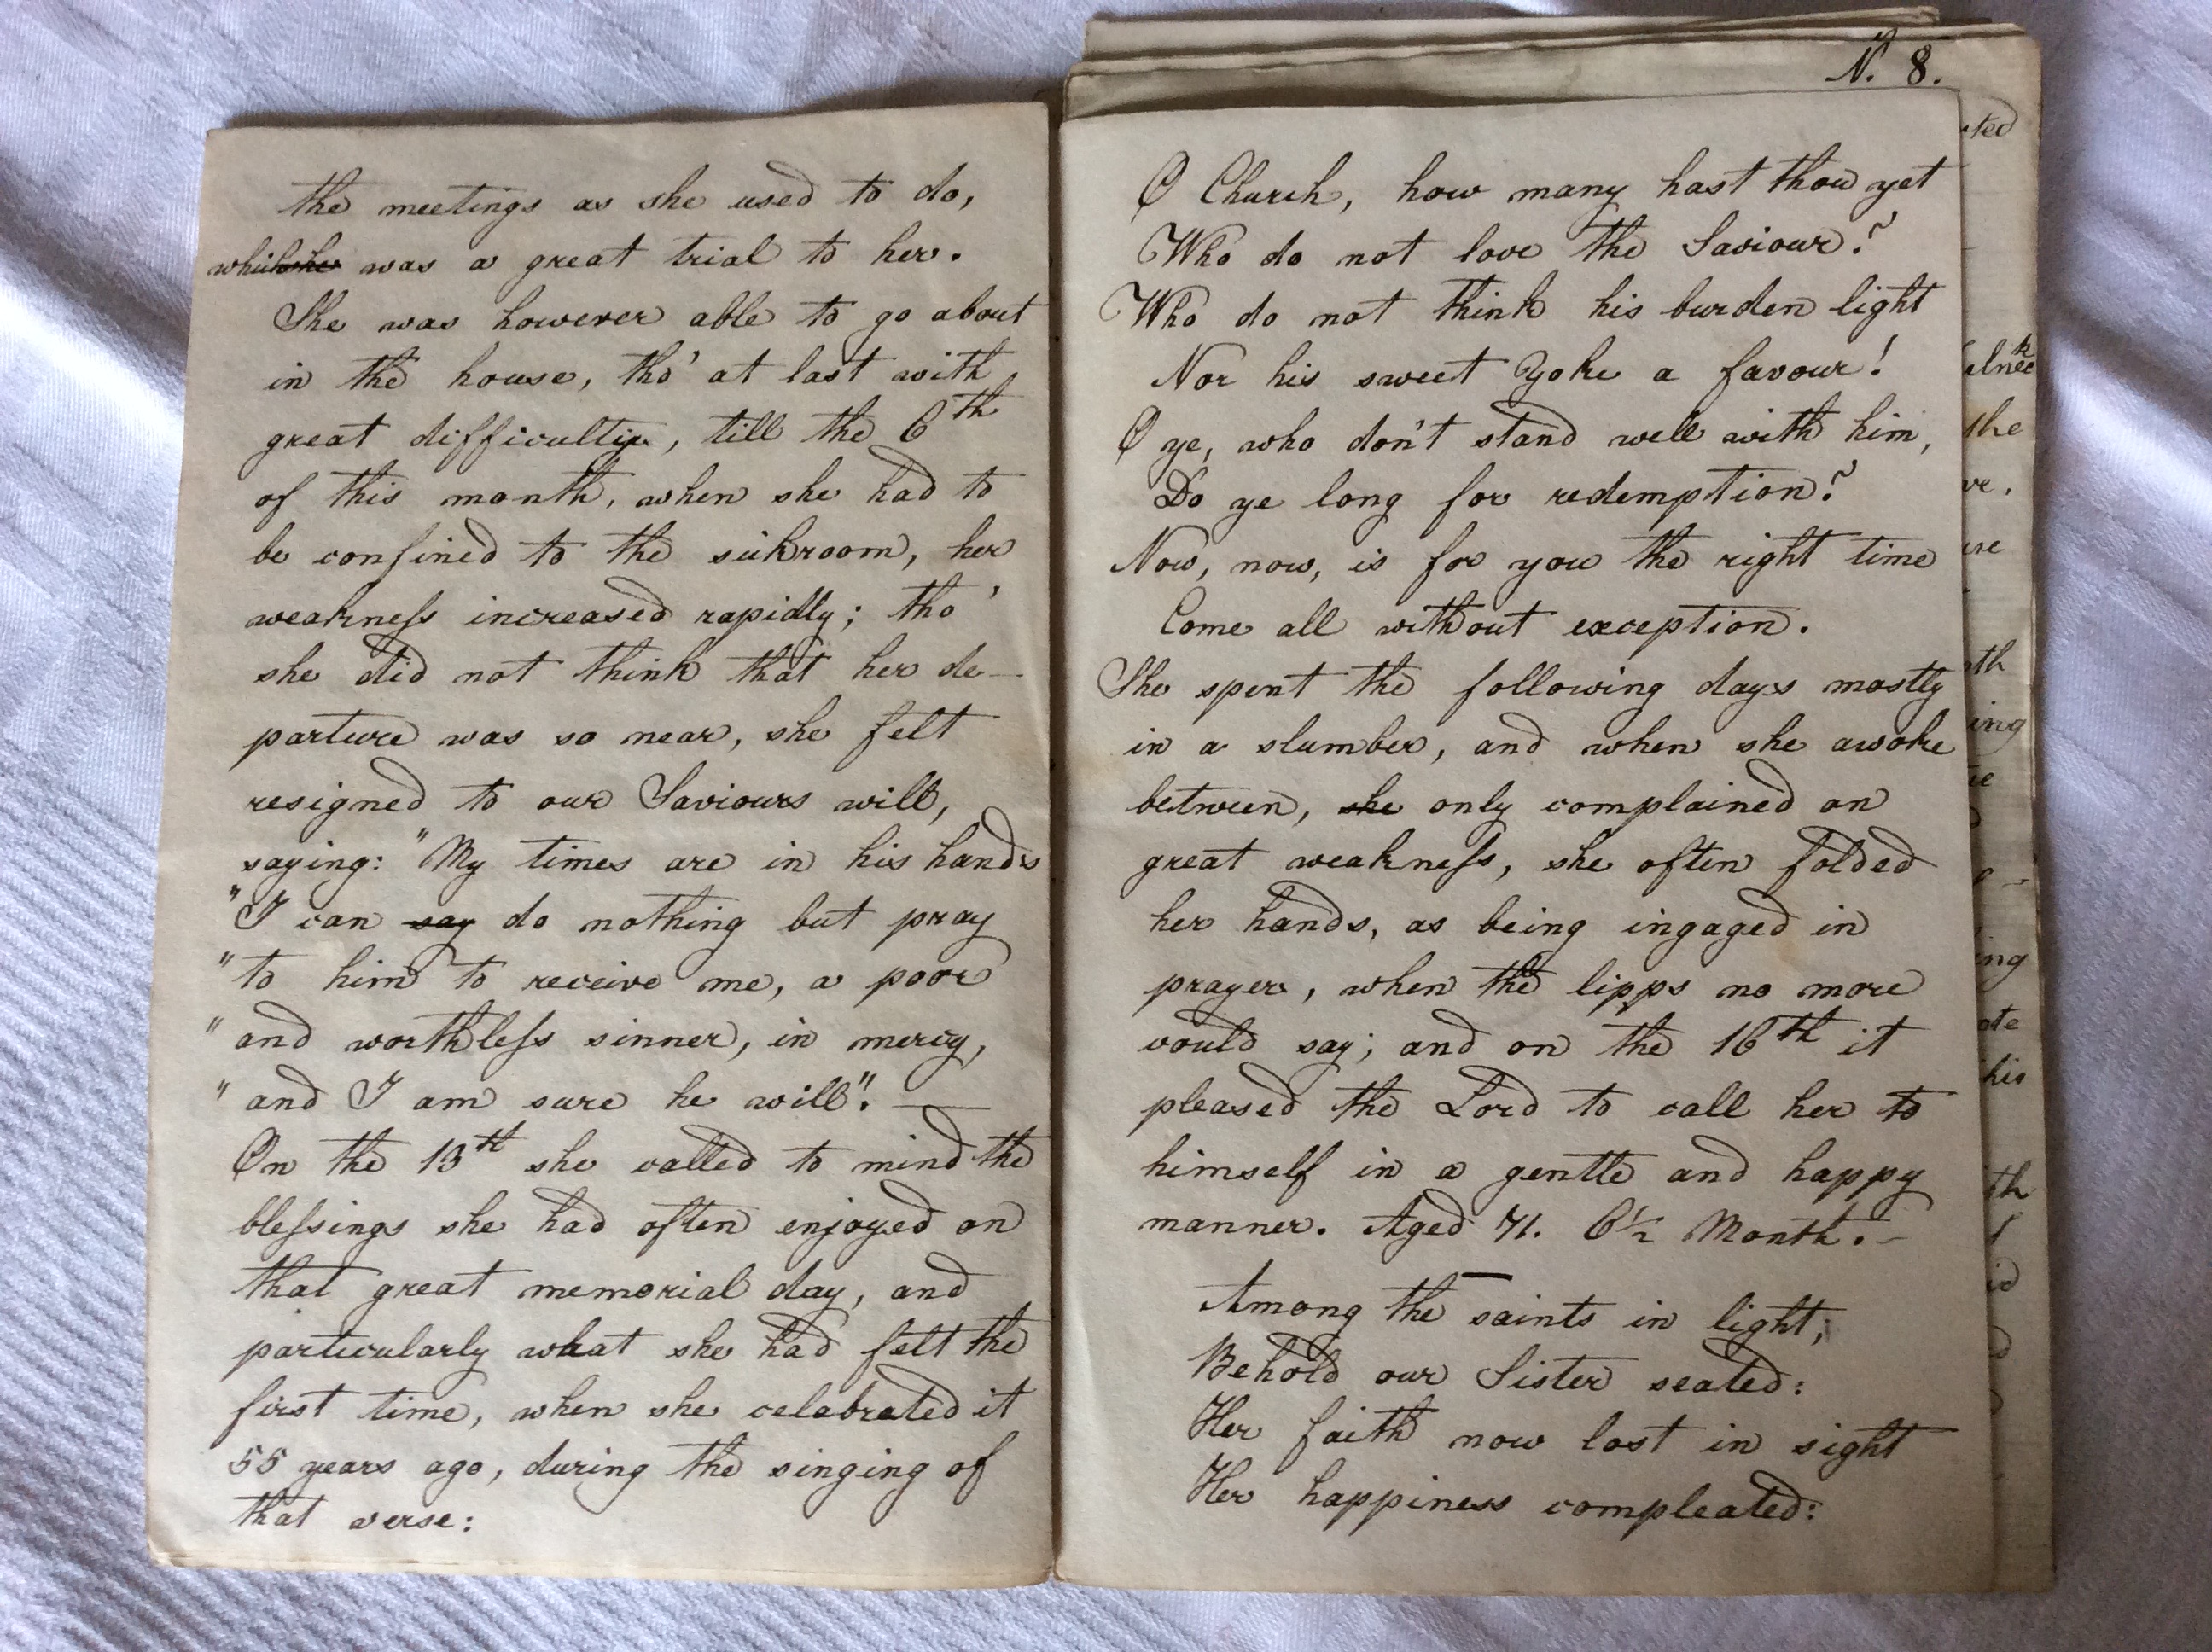 the meetings as she used to do,
which she was a great trial to her.
She was however able to go about
in the house, tho' at last with
great difficulty, till the 6th
of this month, when she had to
be confined to the sickroom, her
weakness increased rapidly; tho'
she did not think that her de-
parture was so near, she felt
resigned to our Saviours will,
saying: "My times are in his hands
"I can say do nothing but pray
"to him to receive me, a poor
"and worthless sinner, in mercy,
"and I am sure he will". —
On the 13th she called to mind the
blessings she had often enjoyed on
that great memorial day, and
particularly what she had felt the
first time, when she celebrated it
55 years ago, during the singing of
that verse:
N. 8.
O Church, how many hast thou yet
Who do not love the Saviour?
Who do not think his burden light
Nor his sweet Yoke a favour!
O ye, who don't stand well with him,
Do ye long for redemption?
Now, now, is for you the right time
Come all without exception.
She spent the following days mostly
in a slumber, and when she awoke
between, she only complained on
great weakness, she often folded
her hands, as being ingaged in
prayer, when the lipps no more
could say; and on the 16th it
pleased the Lord to call her to
himself in a gentle and happy
manner. Aged 71. 6½ Month. -
Among the saints in light;
Behold our Sister seated:
Her faith now lost in sight
Her happiness compleated:
the
ing
his